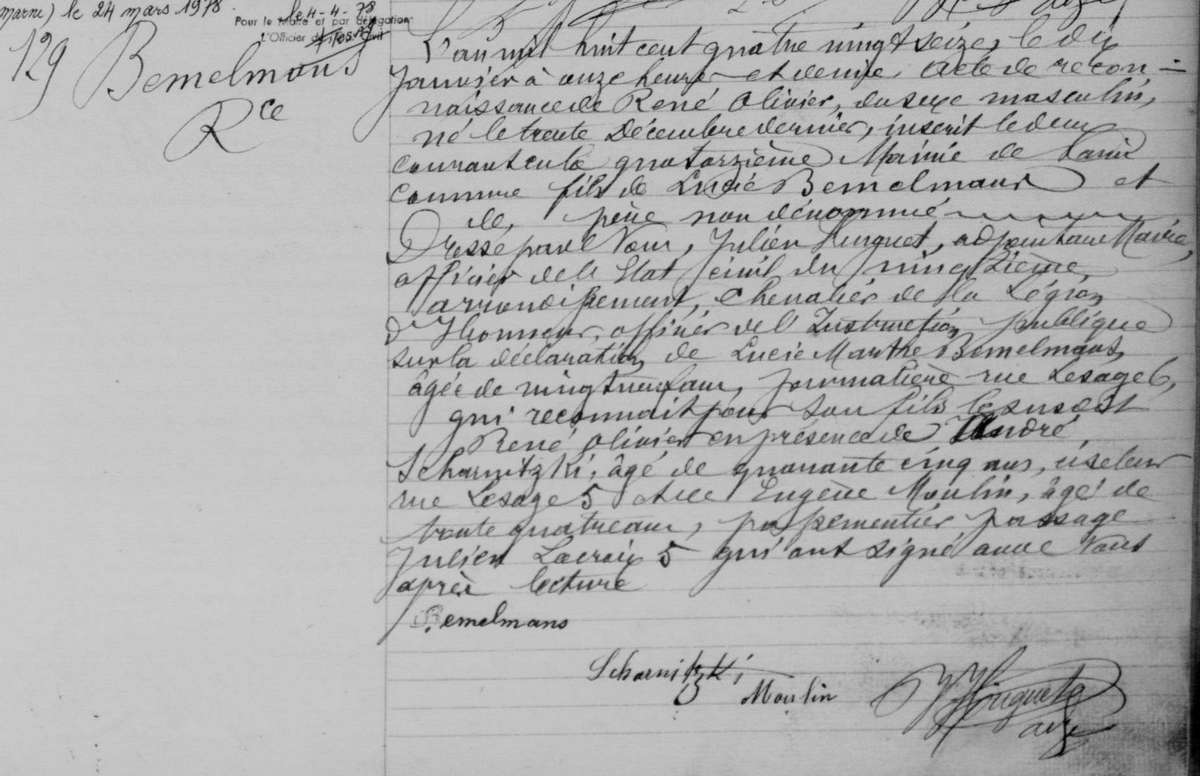 marne) le 24 mars 1978
le 4-4-78
Pour le Maire et par délégation
L'Officier de l'Etat Civil
129
Bemelmans
Rce
L'an mil huit cent quatre vingt seize, le dix
Janvier à onze heures et demie, Acte de recon-
naissance de René Olivier, du sexe masculin,
né le trente Décembre dernier, inscrit le deux
courant cent quatorzième Mairie de Paris
comme fils de Lucie Bemelmans et
de père non dénommé
Dressé par Nous, Julien Huguet, adjoint au Maire,
officier de l'Etat civil du vingtième
arrondissement, Chevalier de la Légion
d'Honneur, officier de l'Instruction publique
sur la déclaration de Lucie Marthe Bemelmans,
âgée de vingt neuf ans, journalière rue Lesage 6,
qui reconnait pour son fils le susdit
René Olivier en présence de André
Scharnitzki, âgé de quarante cinq ans, ciseleur
rue Lesage 5 et de Eugène Moulin, âgé de
trente quatre ans, passementier passage
Julien Lacroix 5 qui ont signé avec Nous
après lecture
Bemelmans
Scharnitzki
Moulin
Huguet
adj